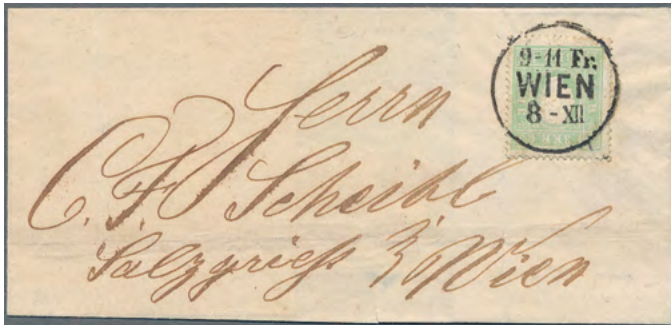 9-11 Fr.
WIEN
8 - XII
Herrn
C. F. Scheibl
Salzgrieß Wien